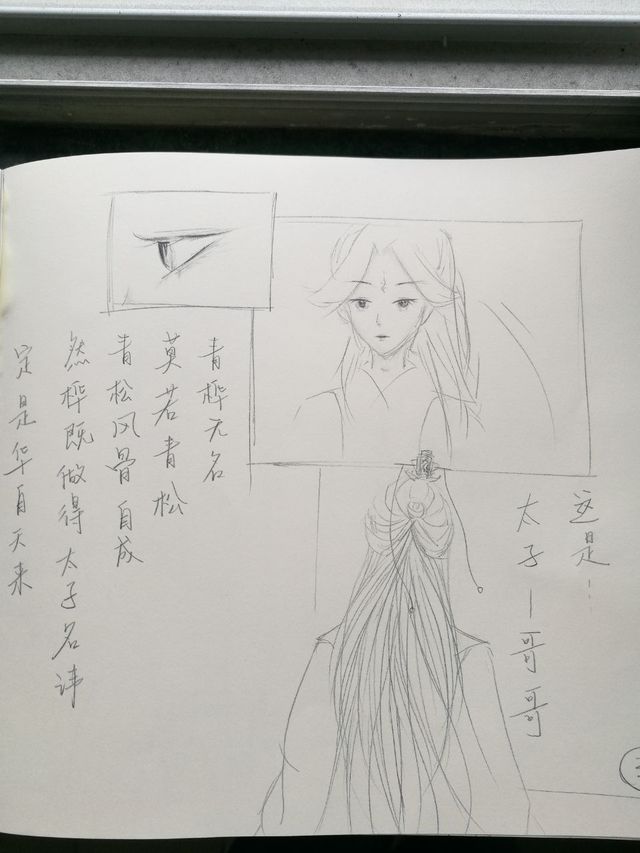 这是…
太子—哥哥
青桦无名
莫若青松
青松风骨自成
然桦既做得太子名讳
定是华自天来